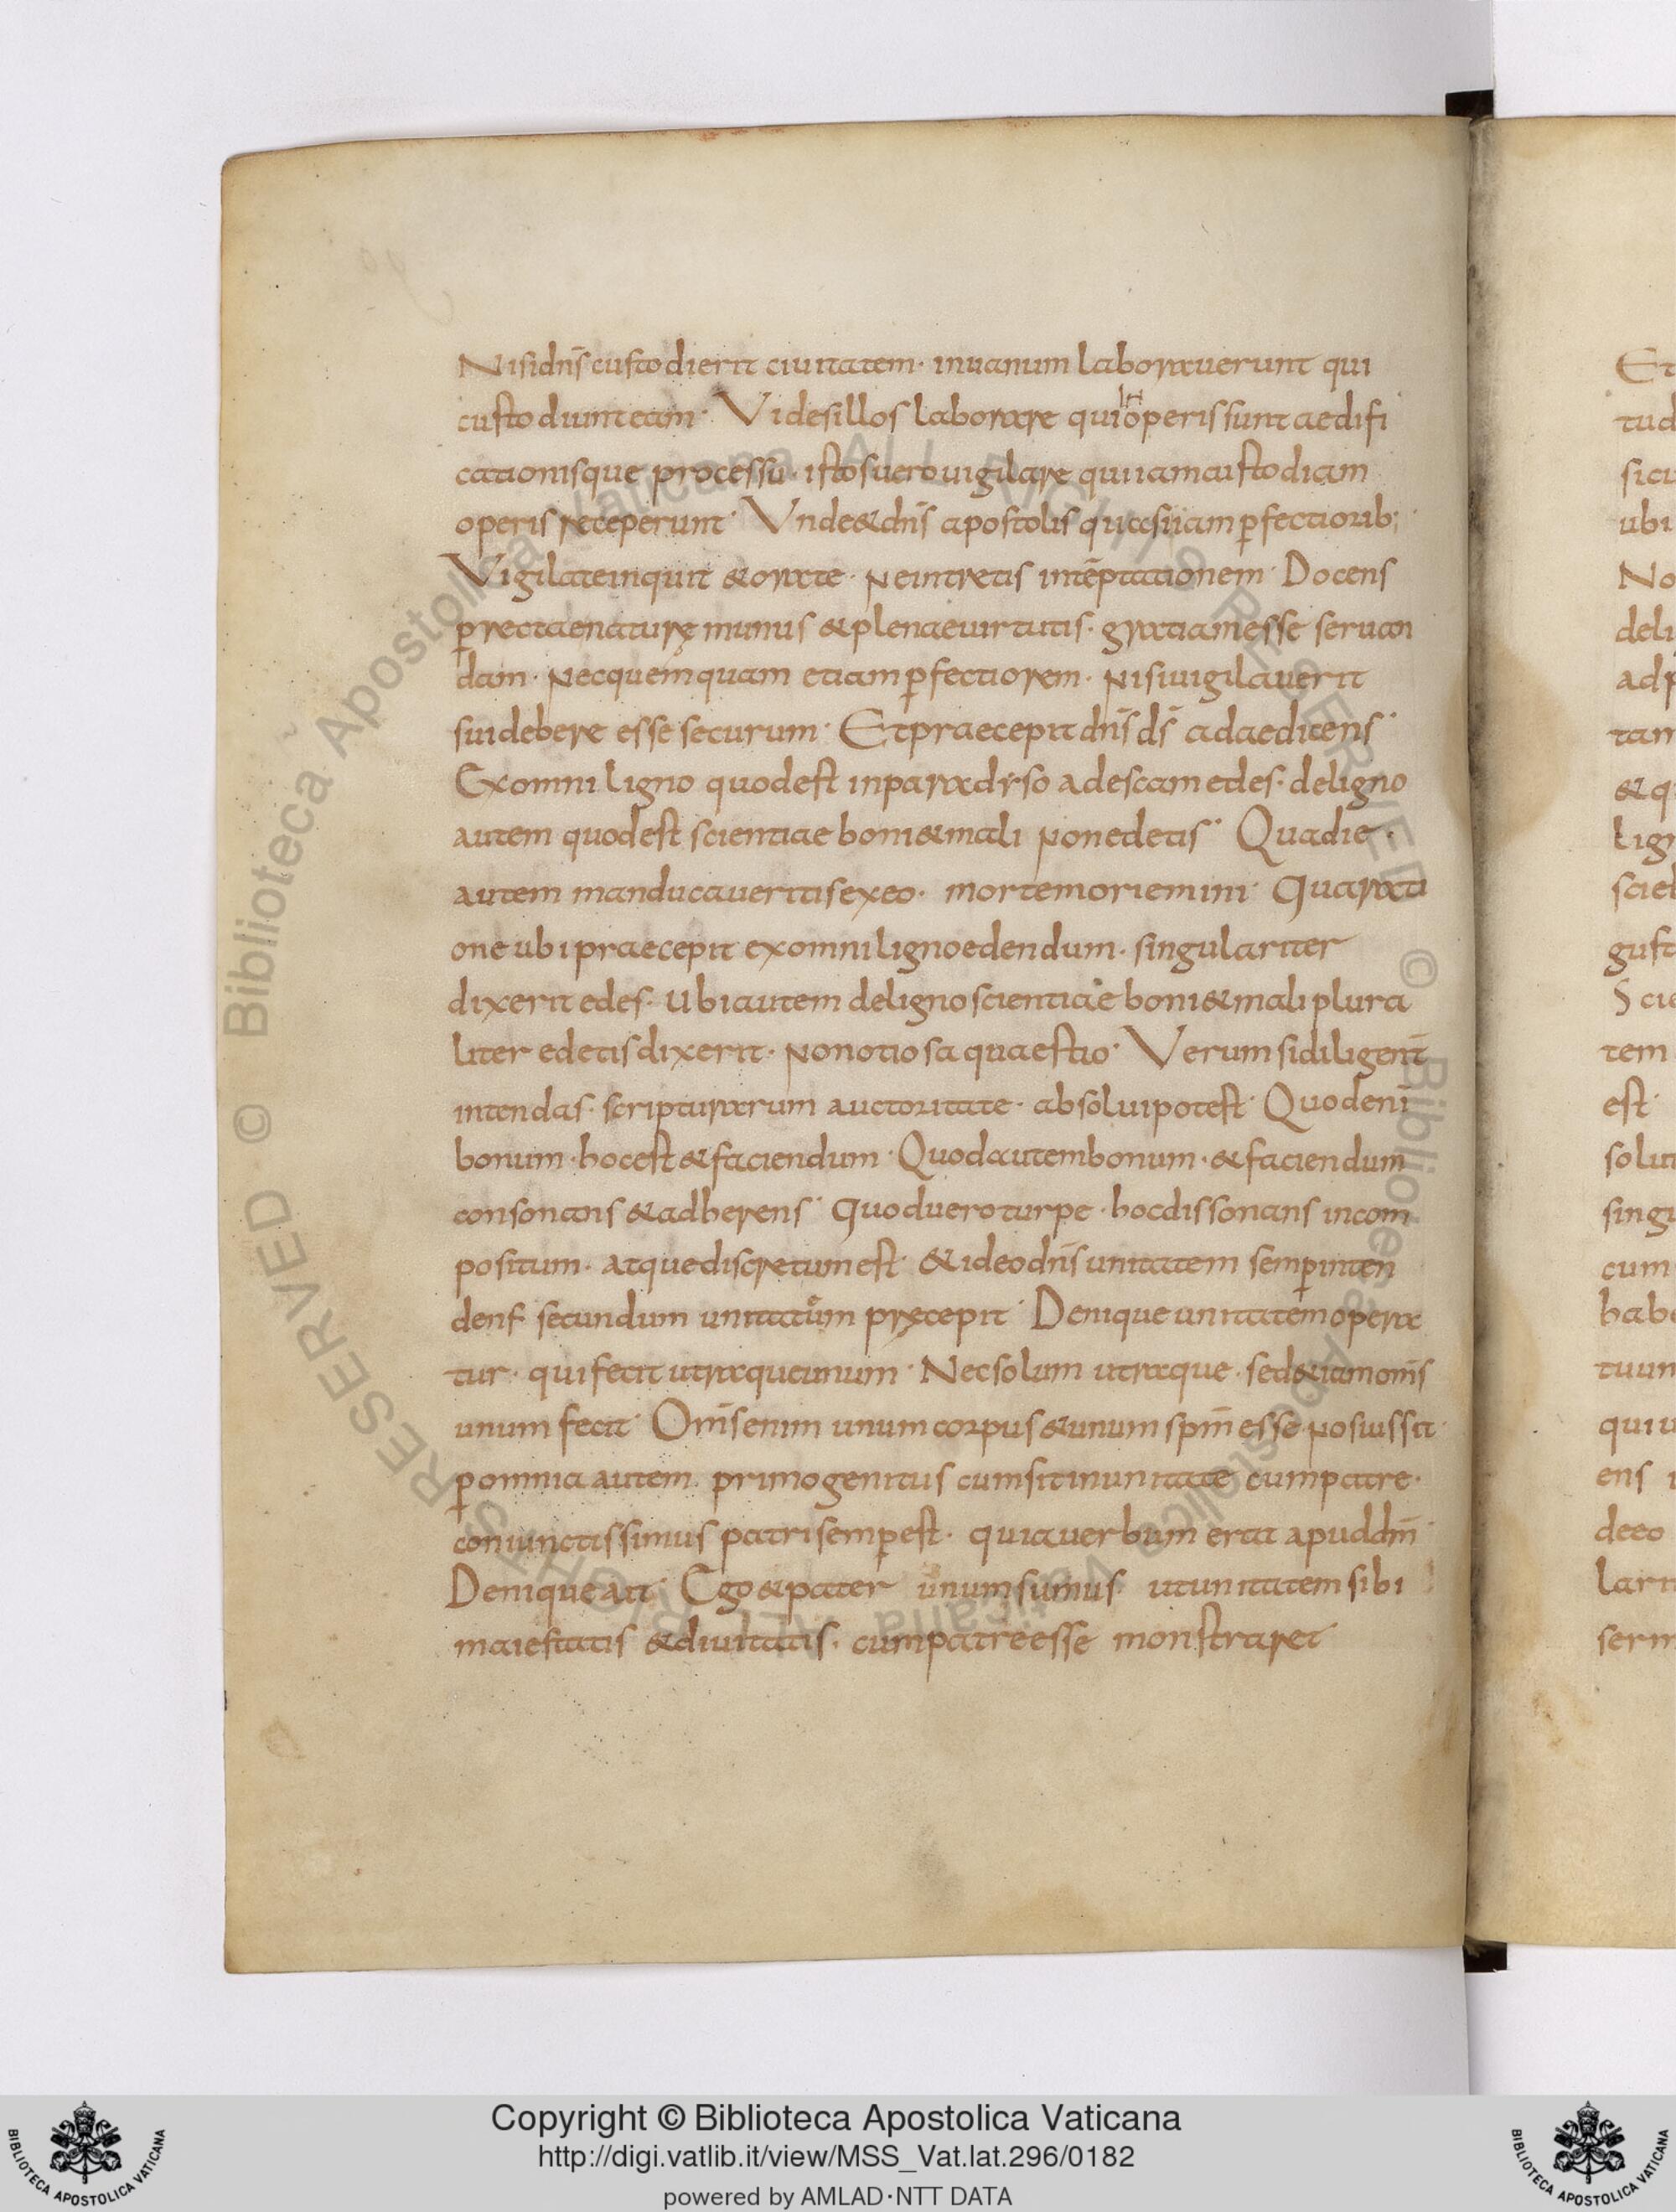 Nisi dñs custodierit ciuitatem· inuanum laborauerunt qui
custodiunt eam· Vides illos laborare qui in operis sunt aedifi
cationisque processu· istos uero uigilare qui iam custodiam
operis receperunt· Vnde & dñs apostolis quasi iam p̱fectiorib;
Vigilate inquit & orate· Ne intretis in tēptationem· Docens
p̱rectae naturę munus & plenae uirtutis· gratiam esse seruan
dam· Nec quemquam etiam p̱fectiorem· Nisi uigilauerit
sui debere esse securum· Et praecepit dñs d̄s adae dicens·
Ex omni ligno quod est in paradyso ad escam edes· de ligno
autem quod est scientiae boni & mali Non edetis· Qua die·
autem manducaueritis ex eo· morte moriemini· Qua rati
one ubi praecepit ex omni ligno edendum· singulariter
dixerit edes· Ubi autem de ligno scientiae boni & mali plura
liter edetis dixerit· Non otiosa quaestio· Verum si diligent̄
intendas· scripturarum auctoritate· absolui potest· Quod enī
bonum· hoc est & faciendum· Quod autem bonum· & faciendum
consonans & adherens· Quod uero turpe· hoc dissonans incom
positum· atque discretum est· & ideo dñs unitatem semp̱ inten
dens· secundum unitatum pręcepit· Denique unitatem opera
tur· qui fecit utraque unum· Nec solum utraque· sed & iam om̄s
unum fecit· Om̄s enim unum corpus & unum sp̄m esse nos iussit·
p̱ omnia autem· primogenitus cum sit in unitate cum patre·
coniunctissimus patri semp̱ est· quia uerbum erat apud dm̄
Denique ait· Ego & pater unum sumus· ut unitatem sibi
maiestatis & diuitatis· cum patre esse monstraret
Et
tud
sicu
ubi
No
deli
adp
tam
& q
lig
scie
gust
Scie
tem
est·
solut
singu
cum
habe
tuum
qui u
ens
deeo
larit
serm
© Biblioteca Apostolica Vaticana ALL RIGHTS RESERVED
© Biblioteca Apostolica Vaticana ALL RIGHTS RESERVED
BIBLIOTECA APOSTOLICA VATICANA
Copyright © Biblioteca Apostolica Vaticana
http://digi.vatlib.it/view/MSS_Vat.lat.296/0182
powered by AMLAD·NTT DATA
BIBLIOTECA APOSTOLICA VATICANA